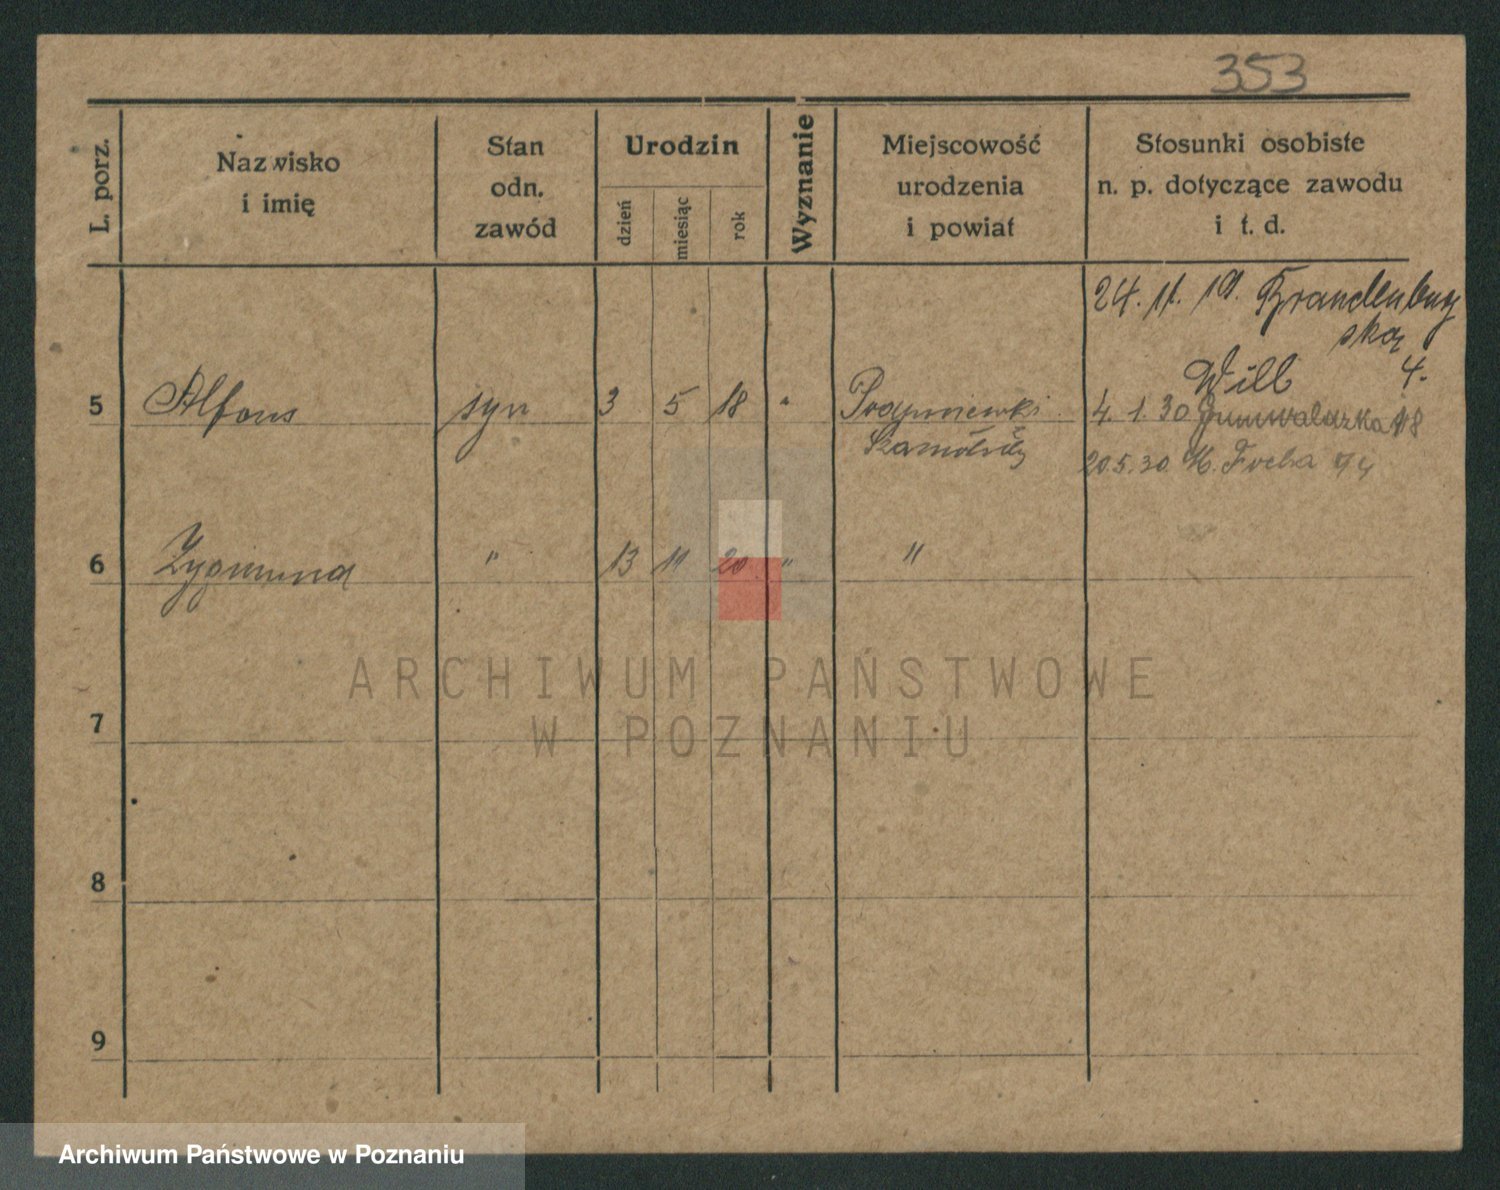 353
L. porz.
Nazwisko
i imię
Stan
odn.
zawód
Urodzin
dzień
miesiąc
rok
Wyznanie
Miejscowość
urodzenia
i powiat
Stosunki osobiste
n. p. dotyczące zawodu
i t. d.
24. 11. 19. Brandenbur
ska
Will 4.
5 Alfons syn 3 5 18 "
4. 1. 30 Grunwaldzka 18
20.5.30 M. Focha
6 Zygmund " 13 11 20 " "
7
8
9
ARCHIWUM PAŃSTWOWE
W POZNANIU
Archiwum Państwowe w Poznaniu